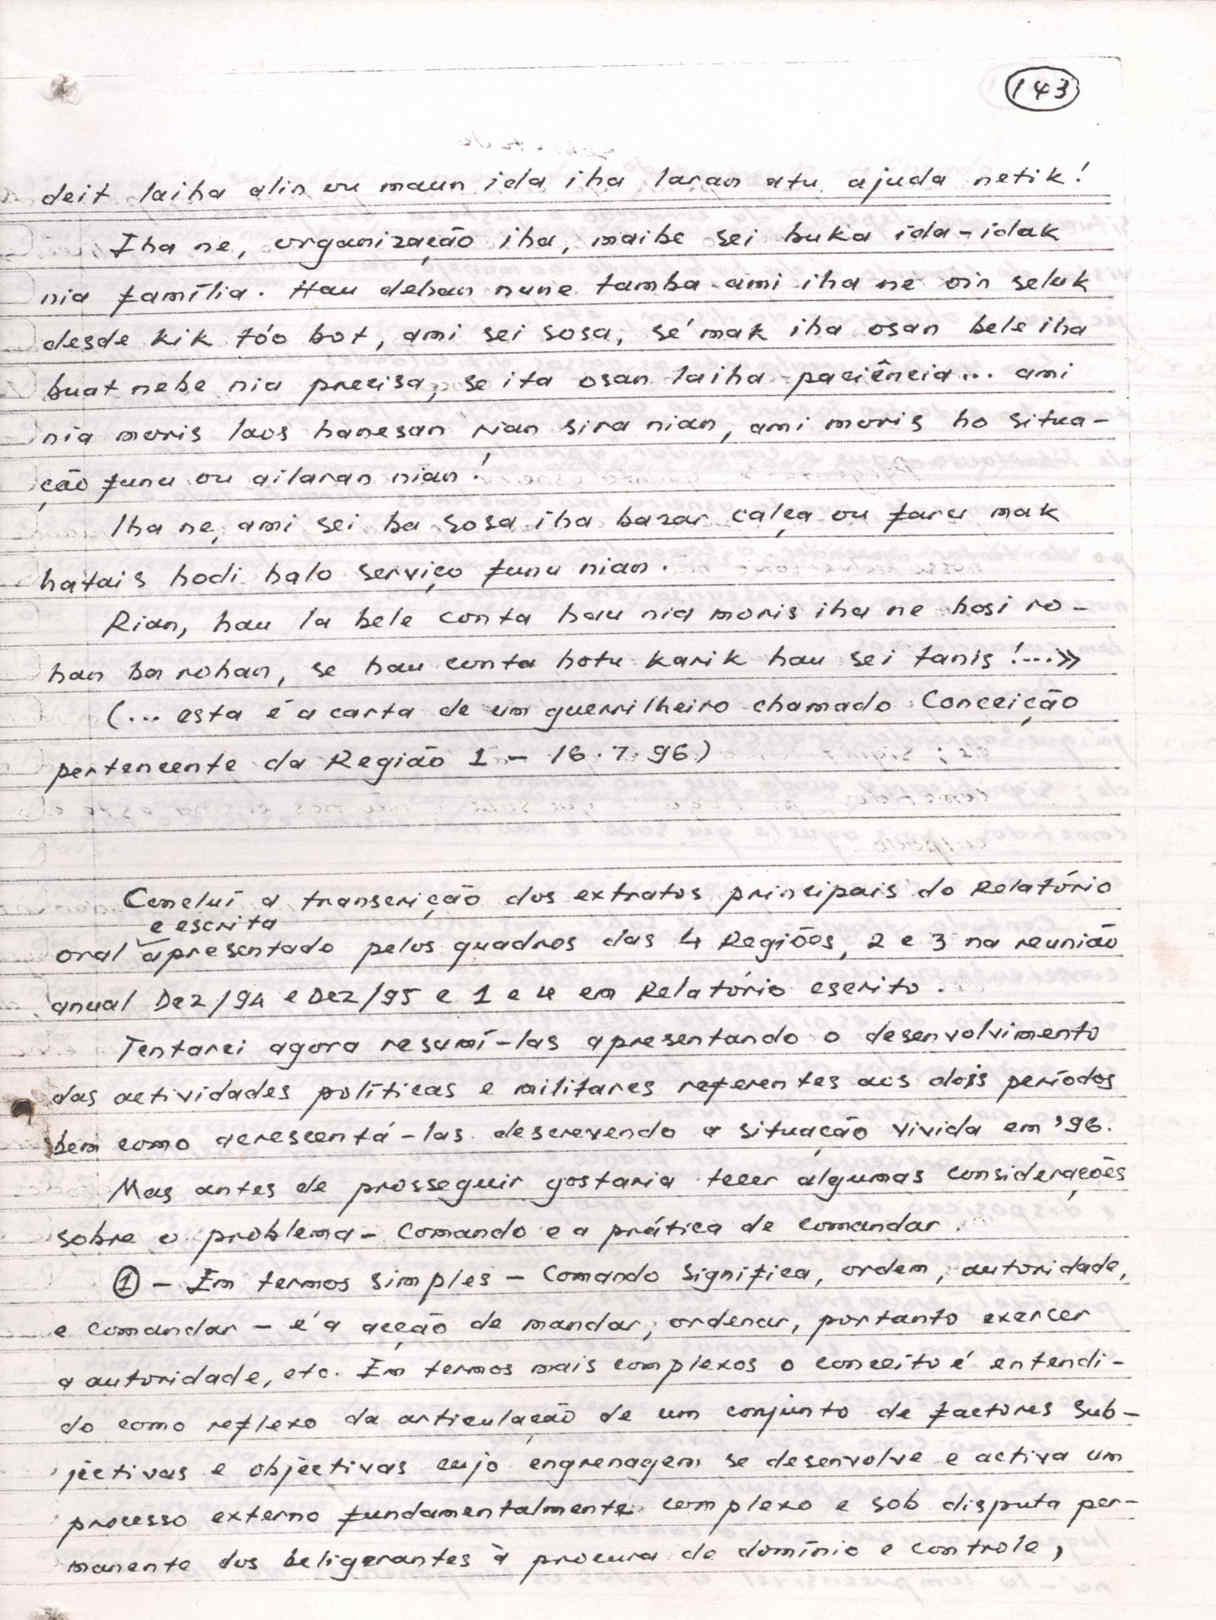 143
deit laiha alin ou maun ida iha laran atu ajuda netik!
Iha ne, organização iha, maibe sei buka ida-idak
nia família. Hau dehan nune tamba ami iha ne oin seluk
desde kik tóo bot, ami sei sosa, sé mak iha osan bele iha
buat nebe nia precisa, se ita osan laiha paciência... ami
nia moris laos hanesan rian sira nian, ami moris ho situa-
ção funu ou ailaran nian!
Iha ne, ami sei ba sosa iha bazar calça ou faru mak
hatais hodi halo serviço funu nian.
Rian, hau la bele conta hau nia moris iha ne hosi ro-
han ba rohan, se hau conta hotu karik hau sei tanis!...»
(... esta é a carta de um guerrilheiro chamado Conceição
pertencente da Região 1 - 16.7.96)
Concluí a transcrição dos extratos principais do Relatório
e escrita
oral apresentado pelos quadros das 4 Regiões, 2 e 3 na reunião
anual Dez/94 e Dez/95 e 1 e 4 em Relatório escrito.
Tentarei agora resumí-las apresentando o desenvolvimento
das actividades políticas e militares referentes aos dois períodos
bem como acrescentá-las descrevendo a situação vivida em '96.
Mas antes de prosseguir gostaria tecer algumas considerações
sobre o problema - Comando e a prática de comandar.
1 - Em termos simples - Comando significa, ordem, autoridade,
e comandar - é a acção de mandar, ordenar, portanto exercer
a autoridade, etc. Em termos mais complexos o conceito é entendi-
do como reflexo da articulação de um conjunto de factores sub-
jectivas e objectivas cujo engrenagem se desenvolve e activa um
processo externo fundamentalmente complexo e sob disputa per-
manente dos beligerantes à procura de domínio e controle,